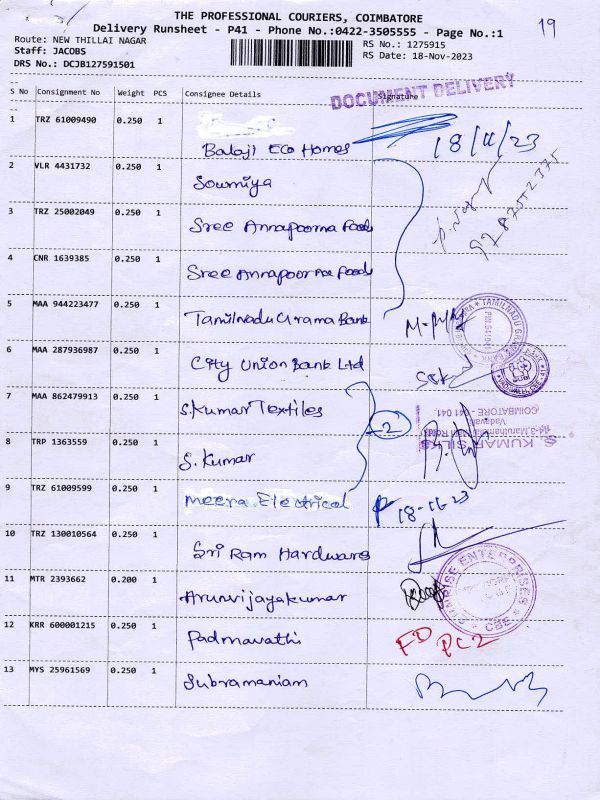 THE PROFESSIONAL COURIERS, COIMBATORE
Delivery Runsheet - P41 - Phone No.:0422-3505555 - Page No.:1
19
Route: NEW THILLAI NAGAR
RS No.: 1275915
Staff: JACOBS
RS Date: 18-Nov-2023
DRS No.: DCJB127591501
DOCUMENT DELIVERY
S No Consignment No Weight PCS Consignee Details Signature
1 TRZ 61009490 0.250 1 Balaji Eco Homes 18/11/23
2 VLR 4431732 0.250 1 Soumiya
9787552375
3 TRZ 25002049 0.250 1 Sree Annapoorna Foods
4 CNR 1639385 0.250 1 Sree Annapoorna Foods
5 MAA 944223477 0.250 1 Tamilnadu Grama Bank
TAMILNADU GRAMA BANK
6 MAA 287936987 0.250 1 City Union Bank Ltd
7 MAA 862479913 1 0.250 1 S.Kumar Textiles
2
S KUMAR SILKS
Vadavalli
COIMBATORE - 641 041.
8 TRP 1363559 0.250 1 S. Kumar
9 TRZ 61009599 0.250 1 Meera Electrical 18-11-23
10 TRZ 130010564 0.250 1 Sri Ram Hardwares
11 MTR 2393662 0.200 1 Arunvijayakumar
SUNRISE ENTERPRISES
CBE
12 KRR 600001215 0.250 1 Padmavathi FD PC2
13 MYS 25961569 0.250 1 Subramaniam